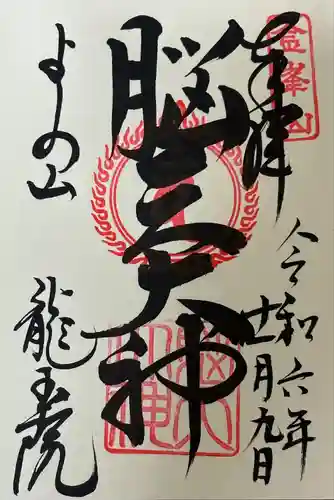 金峯山
奉拝
令和六年
十一月九日
脳天大神
よしの山
龍王院